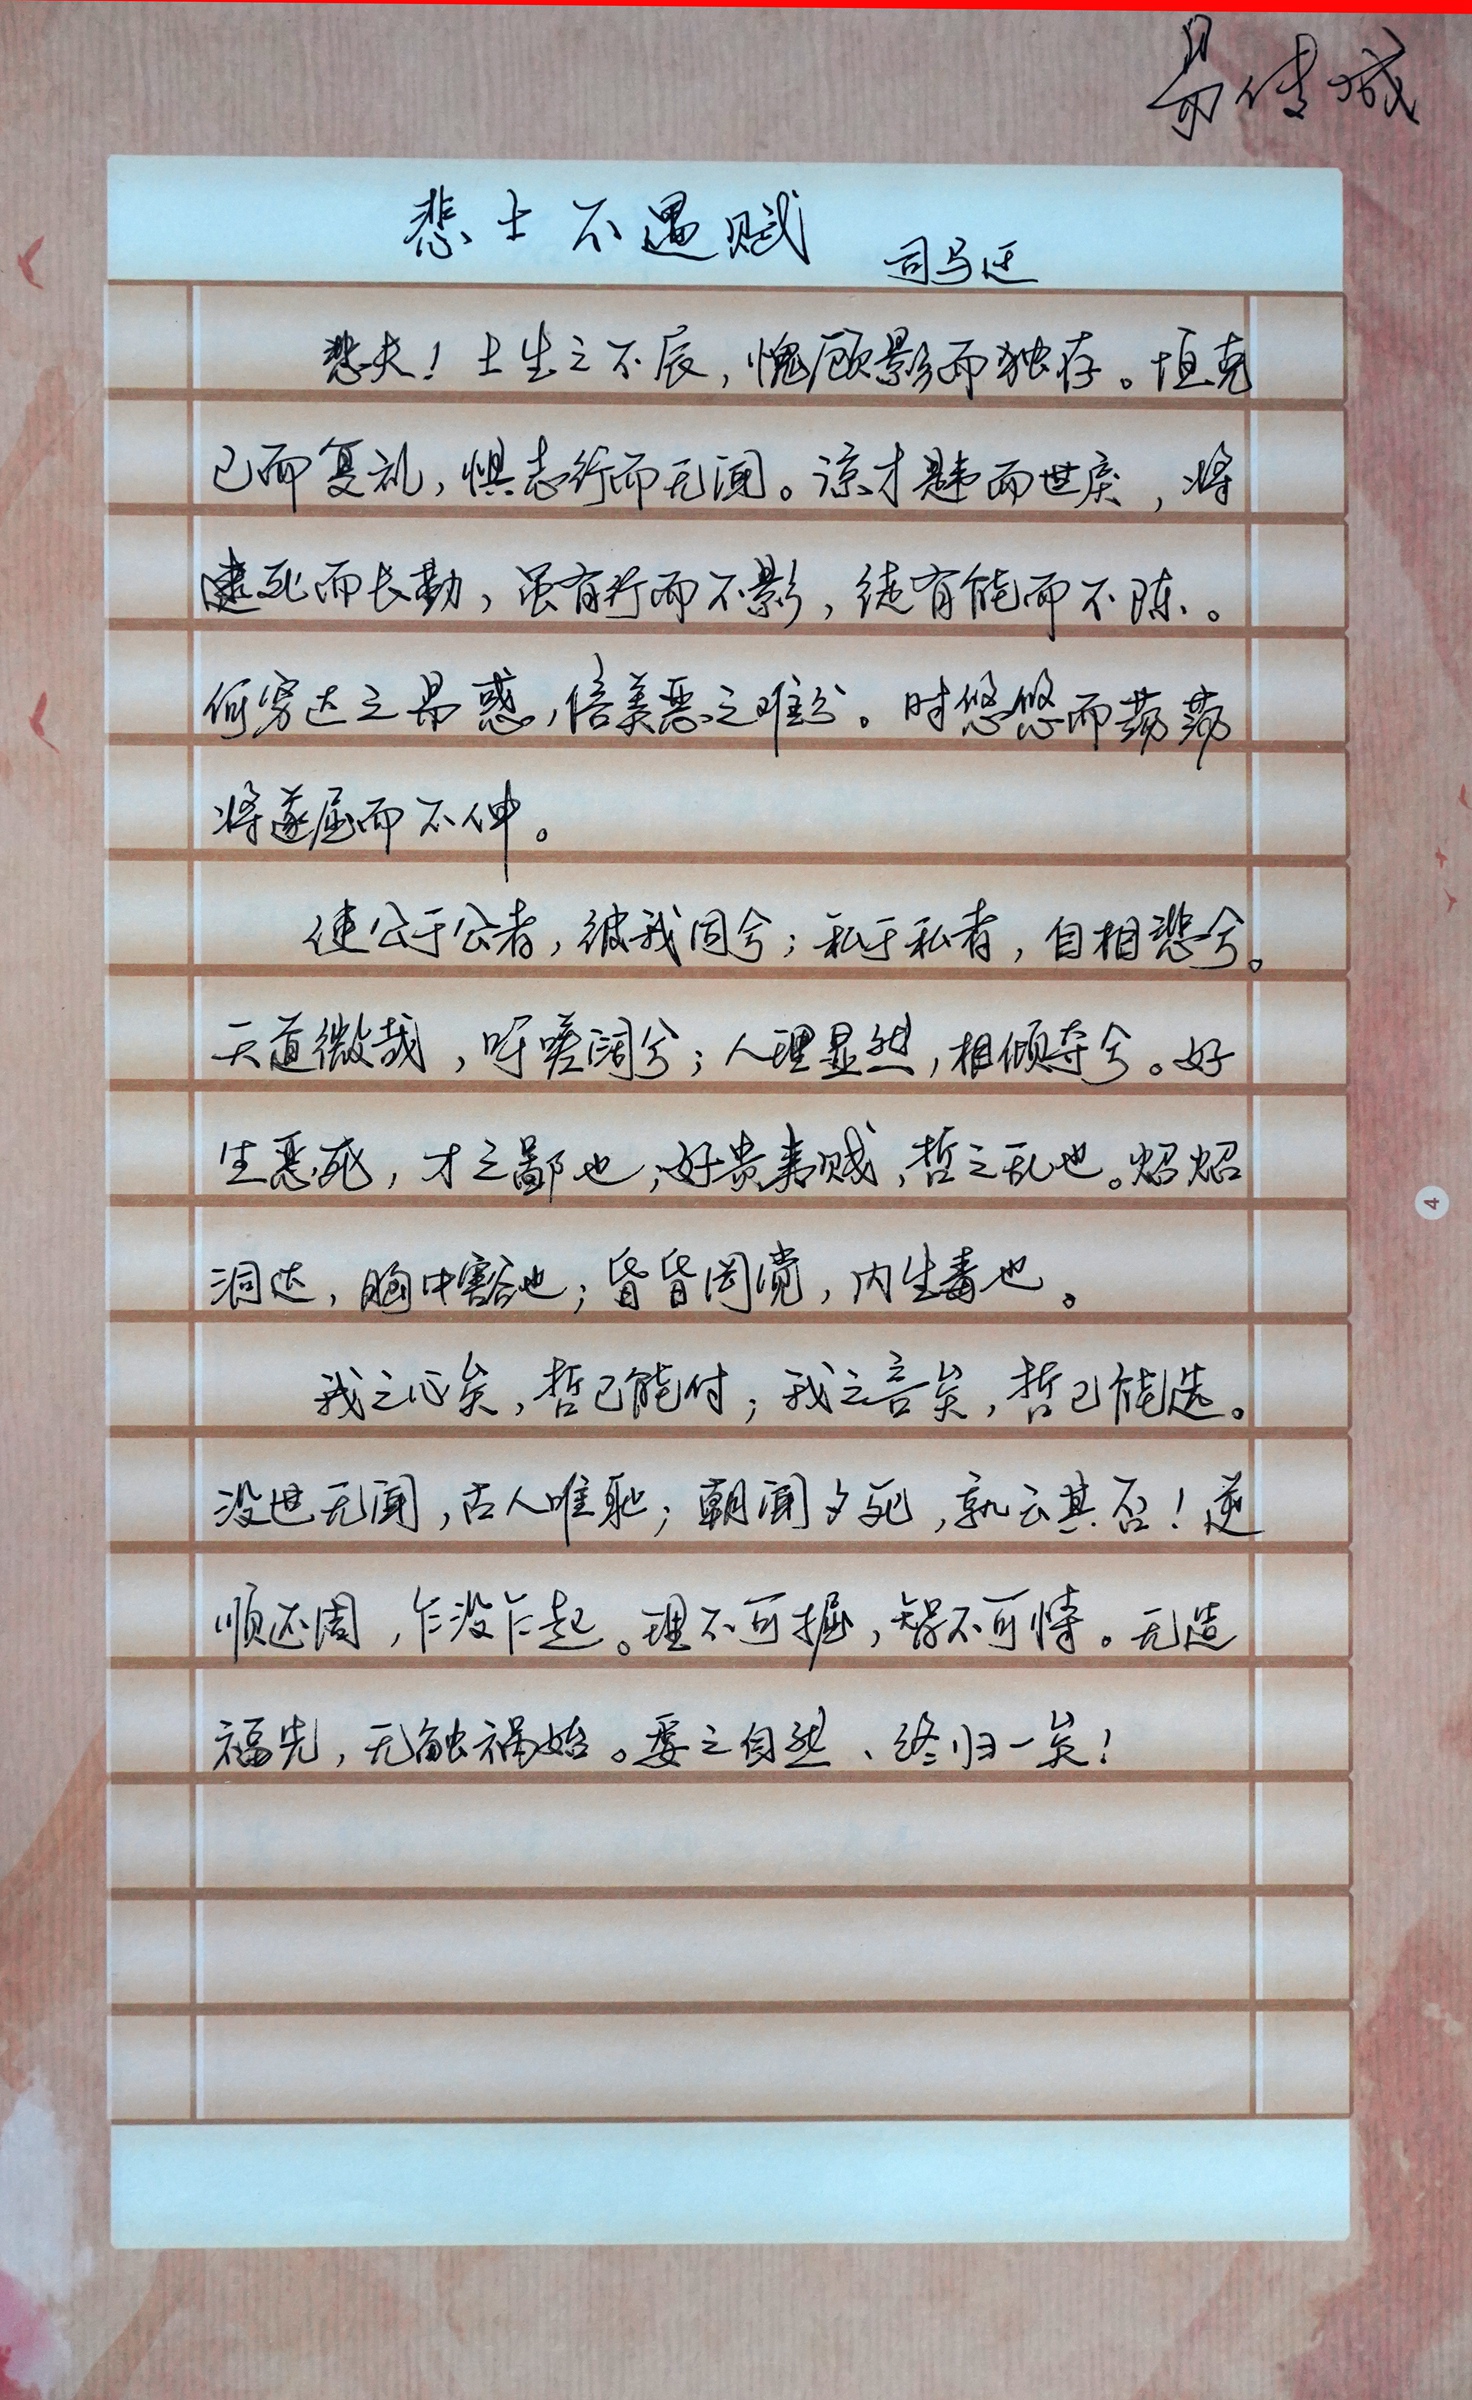 易传城
悲士不遇赋
司马迁
悲夫！士生之不辰，愧顾影而独存。恒克
己而复礼，惧志行而无闻。谅才韪而世戾，将
逮死而长勤，虽有行而不影，徒有能而不陈。
何穷达之易惑，信美恶之难分。时悠悠而荡荡
将遂屈而不伸。
使公于公者，彼我同兮；私于私者，自相悲兮。
天道微哉，吁嗟阔兮；人理显然，相倾夺兮。好
生恶死，才之鄙也；好贵夷贱，哲之乱也。炤炤
洞达，胸中豁也；昏昏罔觉，内生毒也。
我之心矣，哲已能忖；我之言矣，哲已能选。
没世无闻，古人唯耻；朝闻夕死，孰云其否！逆
顺还周，乍没乍起。理不可据，智不可恃。无造
福先，无触祸始。委之自然、终归一矣！
4